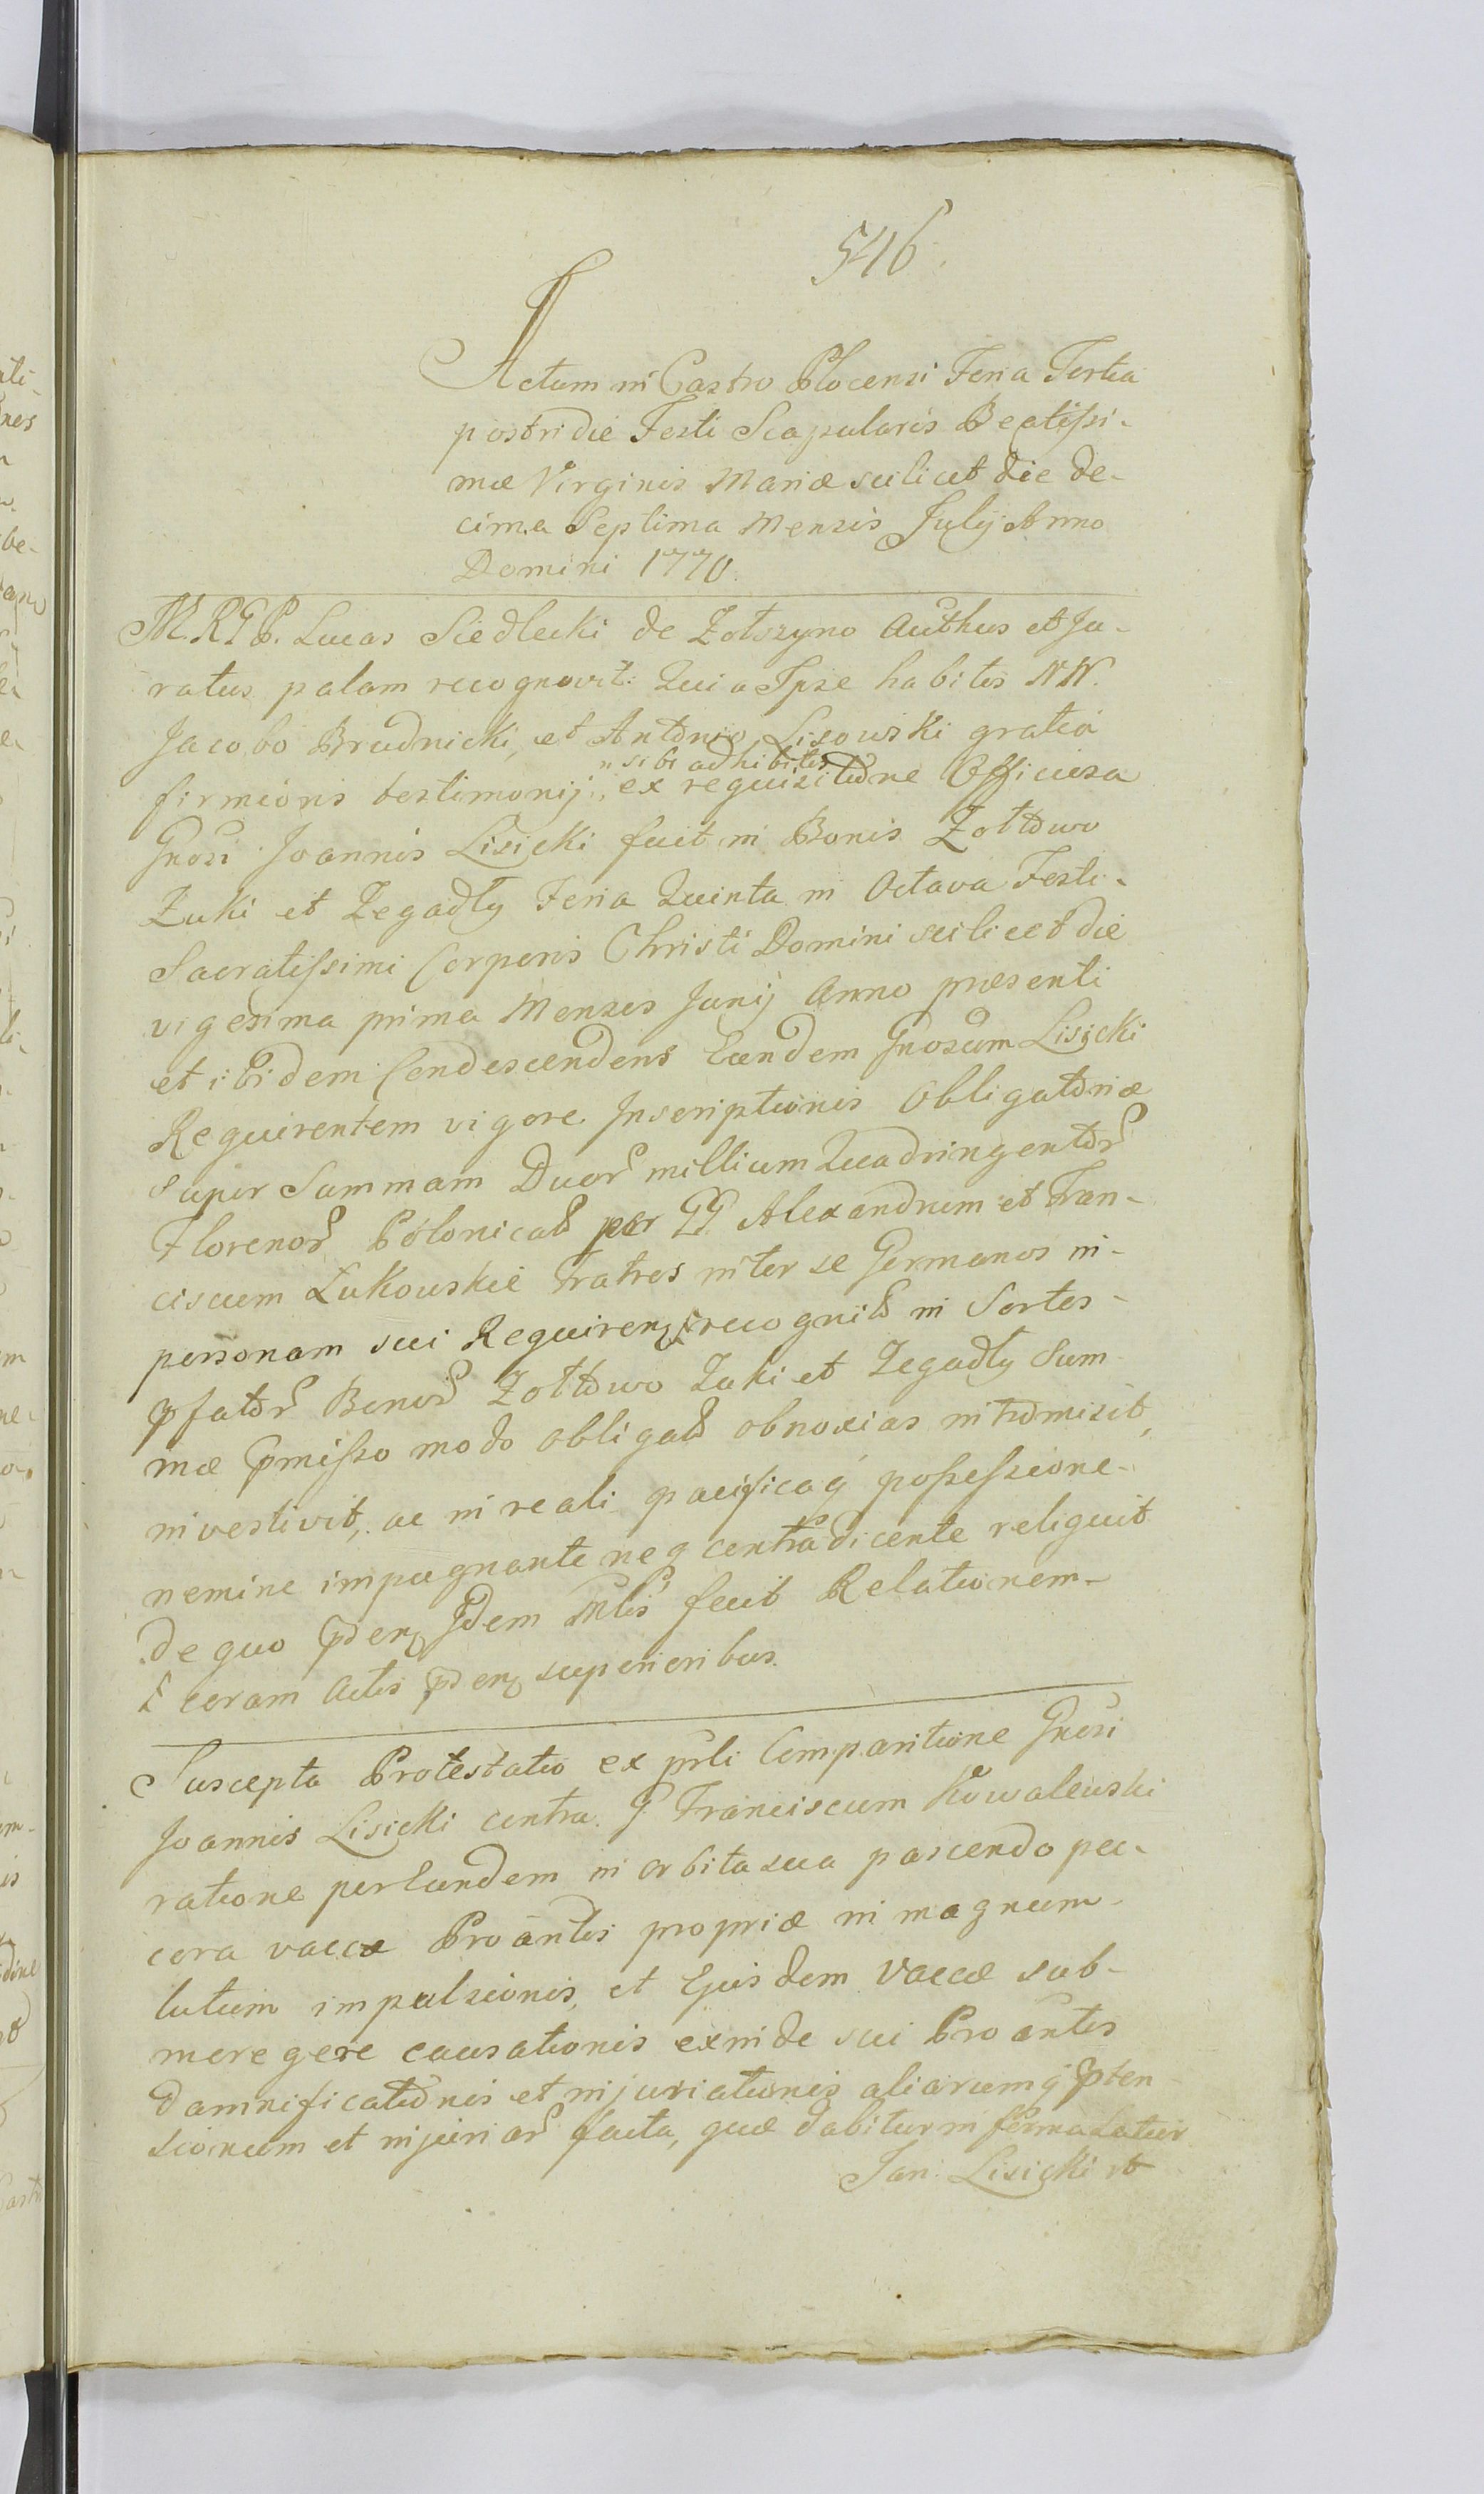 546.
Actum in Castro Plocensi Feria Tertia
postridie Festi Scapularis Beatissi-
mæ Virginis Mariæ scilicet die de-
cima Septima Mensis Julij Anno
Domini 1770.
M.RGP. Lucas Siedlecki de Zołszyno Authus et Ju-
ratus palam recognovit: Quia Ipse habitis NN.
Jacobo Brudnicki, et Antonio Lisowski gratia
firmioris testimonij sibi adhibitis ex requisitione Officiosa
Gnosi Joannis Lisicki fuit in Bonis Zołtowo
Zuki et Zegadły Feria Quinta in Octava Festi-
Sacratissimi Corporis Christi Domini scilicet die
vigesima prima Mensis Junij Anno præsenti
et ibidem Condescendens Eundem Gnosum Lisicki
Requirentem vigore Inscriptionis Obligatoriæ
super Summam Duor millium Quadringentor
Florenor Polonical per GG Alexandrum et Fran-
ciscum Zukowskie Fratres inter se Germanos in-
personam sui Requiren recognit in Sortes-
pfator Bonor Zołtowo Zuki et Zegadły Sum-
mæ pmisso modo obligat obnoxias intromisit,
investivit, ac in reali pacificaq possessione-
nemine impugnante neq contradicente reliquit
de quo pden Idem Mlis fecit Relationem-
coram Actis pden superioribus.
Suscepta Protestatio ex prli Comparitione Gnosi
Joannis Lisicki contra G Franciscum Kowalewski
ratione per Eundem in orbita sua pascendo pec-
cora vaccæ Proantis propriæ in magnum-
lutum impulsionis, et Ejusdem vaccæ sub-
meregere causationis exinde sui Proantis
damnificationis et injuriationis aliarumq pten-
sionum et injuriar facta, quæ dabitur in forma Latior
Jan Lisicki